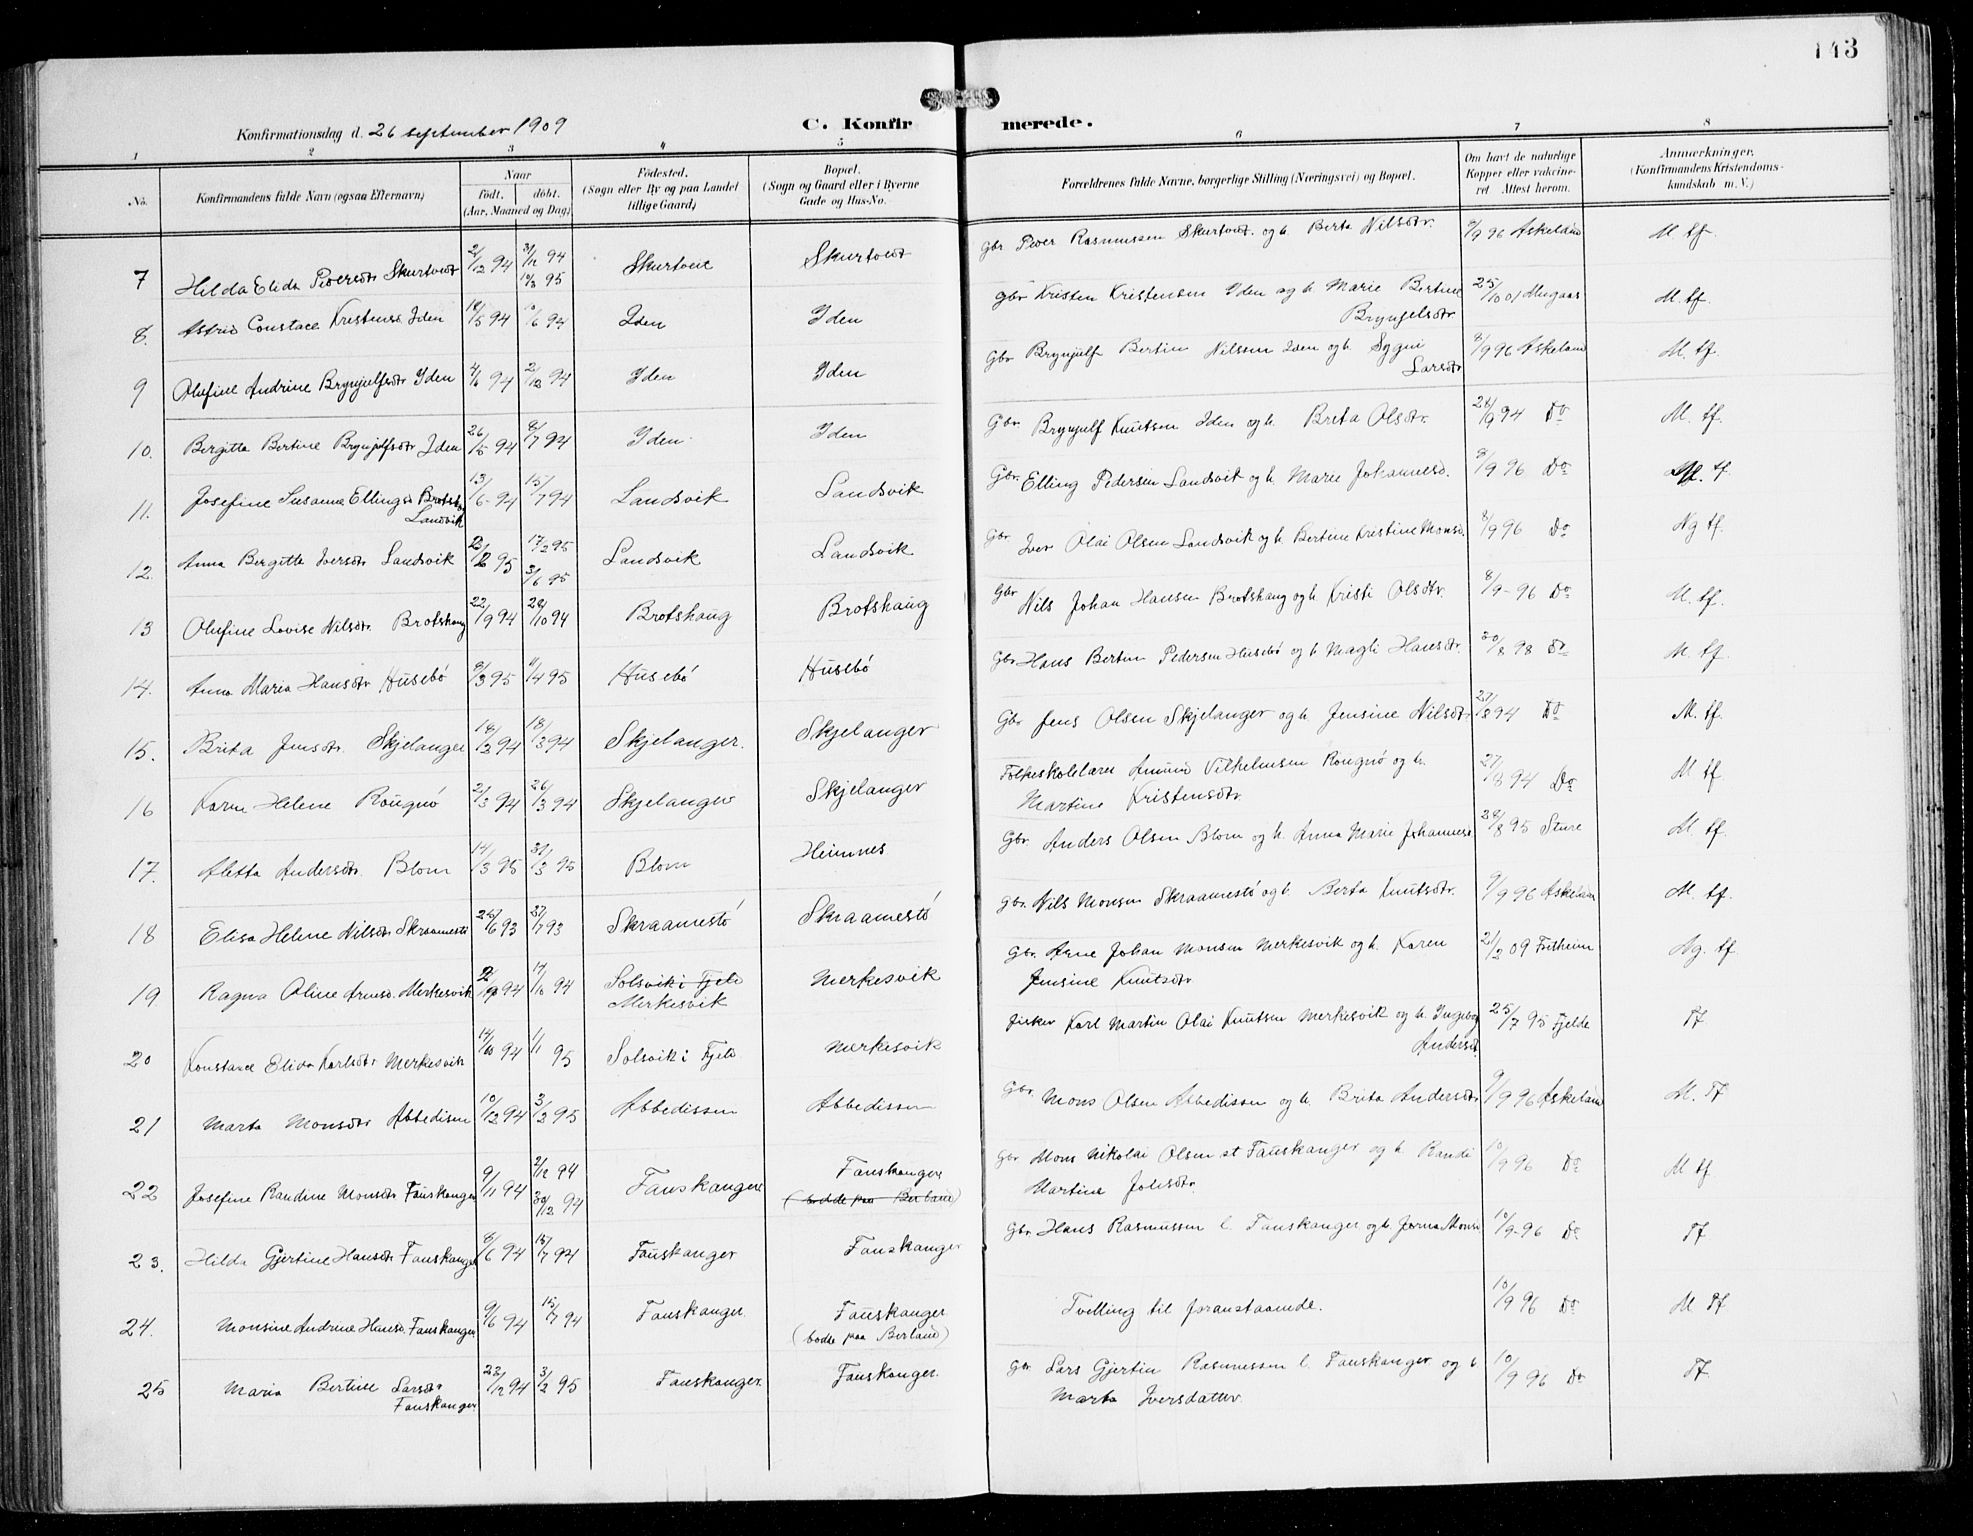 143
Konfirmationsdag d. 26 september 1909 C. Konfirmerede.
1 2 3 4 5 6 7 8
No. Konfirmandens fulde Navn (ogsaa Efternavn) Naar født. døbt. (Aar, Maaned og Dag) Fødested. (Sogn eller By og paa Landet tillige Gaard) Bopæl. (Sogn og Gaard eller i Byerne Gade og Hus-No. Forældrenes fulde Navne, borgerlige Stilling (Næringsvei) og Bopæl. Om havt de naturlige Kopper eller vaccineret Attest herom. Anmærkninger. (Konfirmandens Kristendomskundskab m. V.)
7 Hilda Elida Pedersdtr Skurtveit 2/12 94 Skurtveit Skurtveit Gbr Peder Rasmussen Skurtveit og h. Berta Nilsdtr. 9/9 96 Askeland M. tf.
8. Astrid Constace Kristensd. Iden 94 94 Iden Iden Gbr Kristen Kristensen Iden og h. Marie Bertine Bryngelsdtr. 25/10 01 M. tf.
9 Olufine Andrine Brynjulfsdtr Iden 94 94 Iden Iden Gbr Brynjulf Bertin Nilssen Iden og h. Sygni Larsdtr 8/9 96 Askeland M. tf.
10. Bergitta Bertine Brynjulfsdtr Iden 26/5 94 8/7 94 Iden Iden Gbr. Brynjulf Knutsen Iden og h. Brita Olsdtr. 94 Do M. tf.
11. Josefine Susanne Ellingsd Landsvik 13/6 94 15/7 94 Landsvik Landsvik Gbr. Elling Pedersen Landsvik og h. Marie Johannesd. 8/9 96 Do M. tf
12. Anna Bergitte Iversdtr Landsvik 95 17/2 95 3/6 95 Landsvik Landsvik Gbr Iver Olai Olsen Landsvik og h. Bertine Kristine Monsd. 8/9 96 Do Ng tf.
13 Olufine Lovise Nilsdtr. Brotshaug 22/9 94 28/10 94 Brotshaug Brotshaug Gbr Nils Johan Hansen Brotshaug og h. Kristi Olsdtr. 8/9 96 Do M. tf.
14. Anna Maria Hansdtr Husebø 9/3 95 11/4 95 Husebø Husebø Gbr Hans Bertin Pedersen Husebø og h Magli Hansdtr. 30/8 98 Do M. tf.
15. Brita Jensdtr. Skjelanger 18/2 94 18/3 94 Skjelanger. Skjelanger Gbr Jens Olsen Skjelanger og h. Jensine Nilsdtr 27/8 94 Do M. tf.
16 Karen Helene Rougnø 2/3 94 26/3 94 Skjelanger Skjelanger Folkeskolelærer Amund Vilhelmsen Rougnø og h. Martine Kristensdtr. 27/8 94 Do M tf.
17. Aletta Andersdtr. Blom 14/3 95 31/3 95 Blom Heimnes Gbr. Anders Olsen Blom og h. Anna Marie Johannesd. 95 Sture M. tf.
18 Elisa Helene Nilsdtr Skraamestø 25/6 93 93 Skraamestø Skraamestø Gbr. Nils Monsen Skraamestø og h. Berta Knutsdtr. 9/9 96 Askeland M. tf.
19 Ragna Oline Arnesd. Merkesvik 94 14/10 94 Solsvik i Fjeld Merkesvik Merkesvik Gbr. Arne Johan Monsen Merkesvik og h. Karen Jensine Knutsdtr. 21/2 09 Ng. tf.
20 Konstance Elida Karlsdtr Merkesvik 14/10 94 1/1 95 Solsvik i Fjeld Merkesvik Fisker Karl Martin Olai Knutsen Merkesvik og h. Ingeborg Andersd. 25/7 95 Fjelde Tf
21 Marta Monsdtr Abbedissen 10/12 94 3/2 95 Abbedissen Abbedissen Gbr. Mons Olsen Abbedissen og h. Brita Andersdtr 9/9 96 Askeland M. Tf
22 Josefine Randine Monsdtr Fauskanger 9/11 94 2/12 94 30/12 94 Fauskanger Fauskanger (bodde paa Berland) Gbr Mons Nikolai Olsen st Fauskanger og h. Randi Martina Johsdtr. 10/9 96 Do M tf
23. Hilda Gjertine Hansdtr Fauskanger 8/6 94 15/7 94 Fauskanger Fauskanger Gbr. Hans Rasmussen l. Fauskanger og h. Monsd 10/9 96 Do Tf
24. Monsine Andrine Hansd. Fauskanger 9/6 94 15/7 94 Fauskanger. Fauskanger (bodde paa Berland) Tvilling til foranstaaende. 10/9 96 Do M Tf
25 Maria Bertine Larsdtr Fauskanger 22/12 94 3/2 95 Fauskanger. Fauskanger. Gbr Lars Gjertin Rasmussen l. Fauskanger og h Marta Iversdatter. 10/9 96 Do Tf